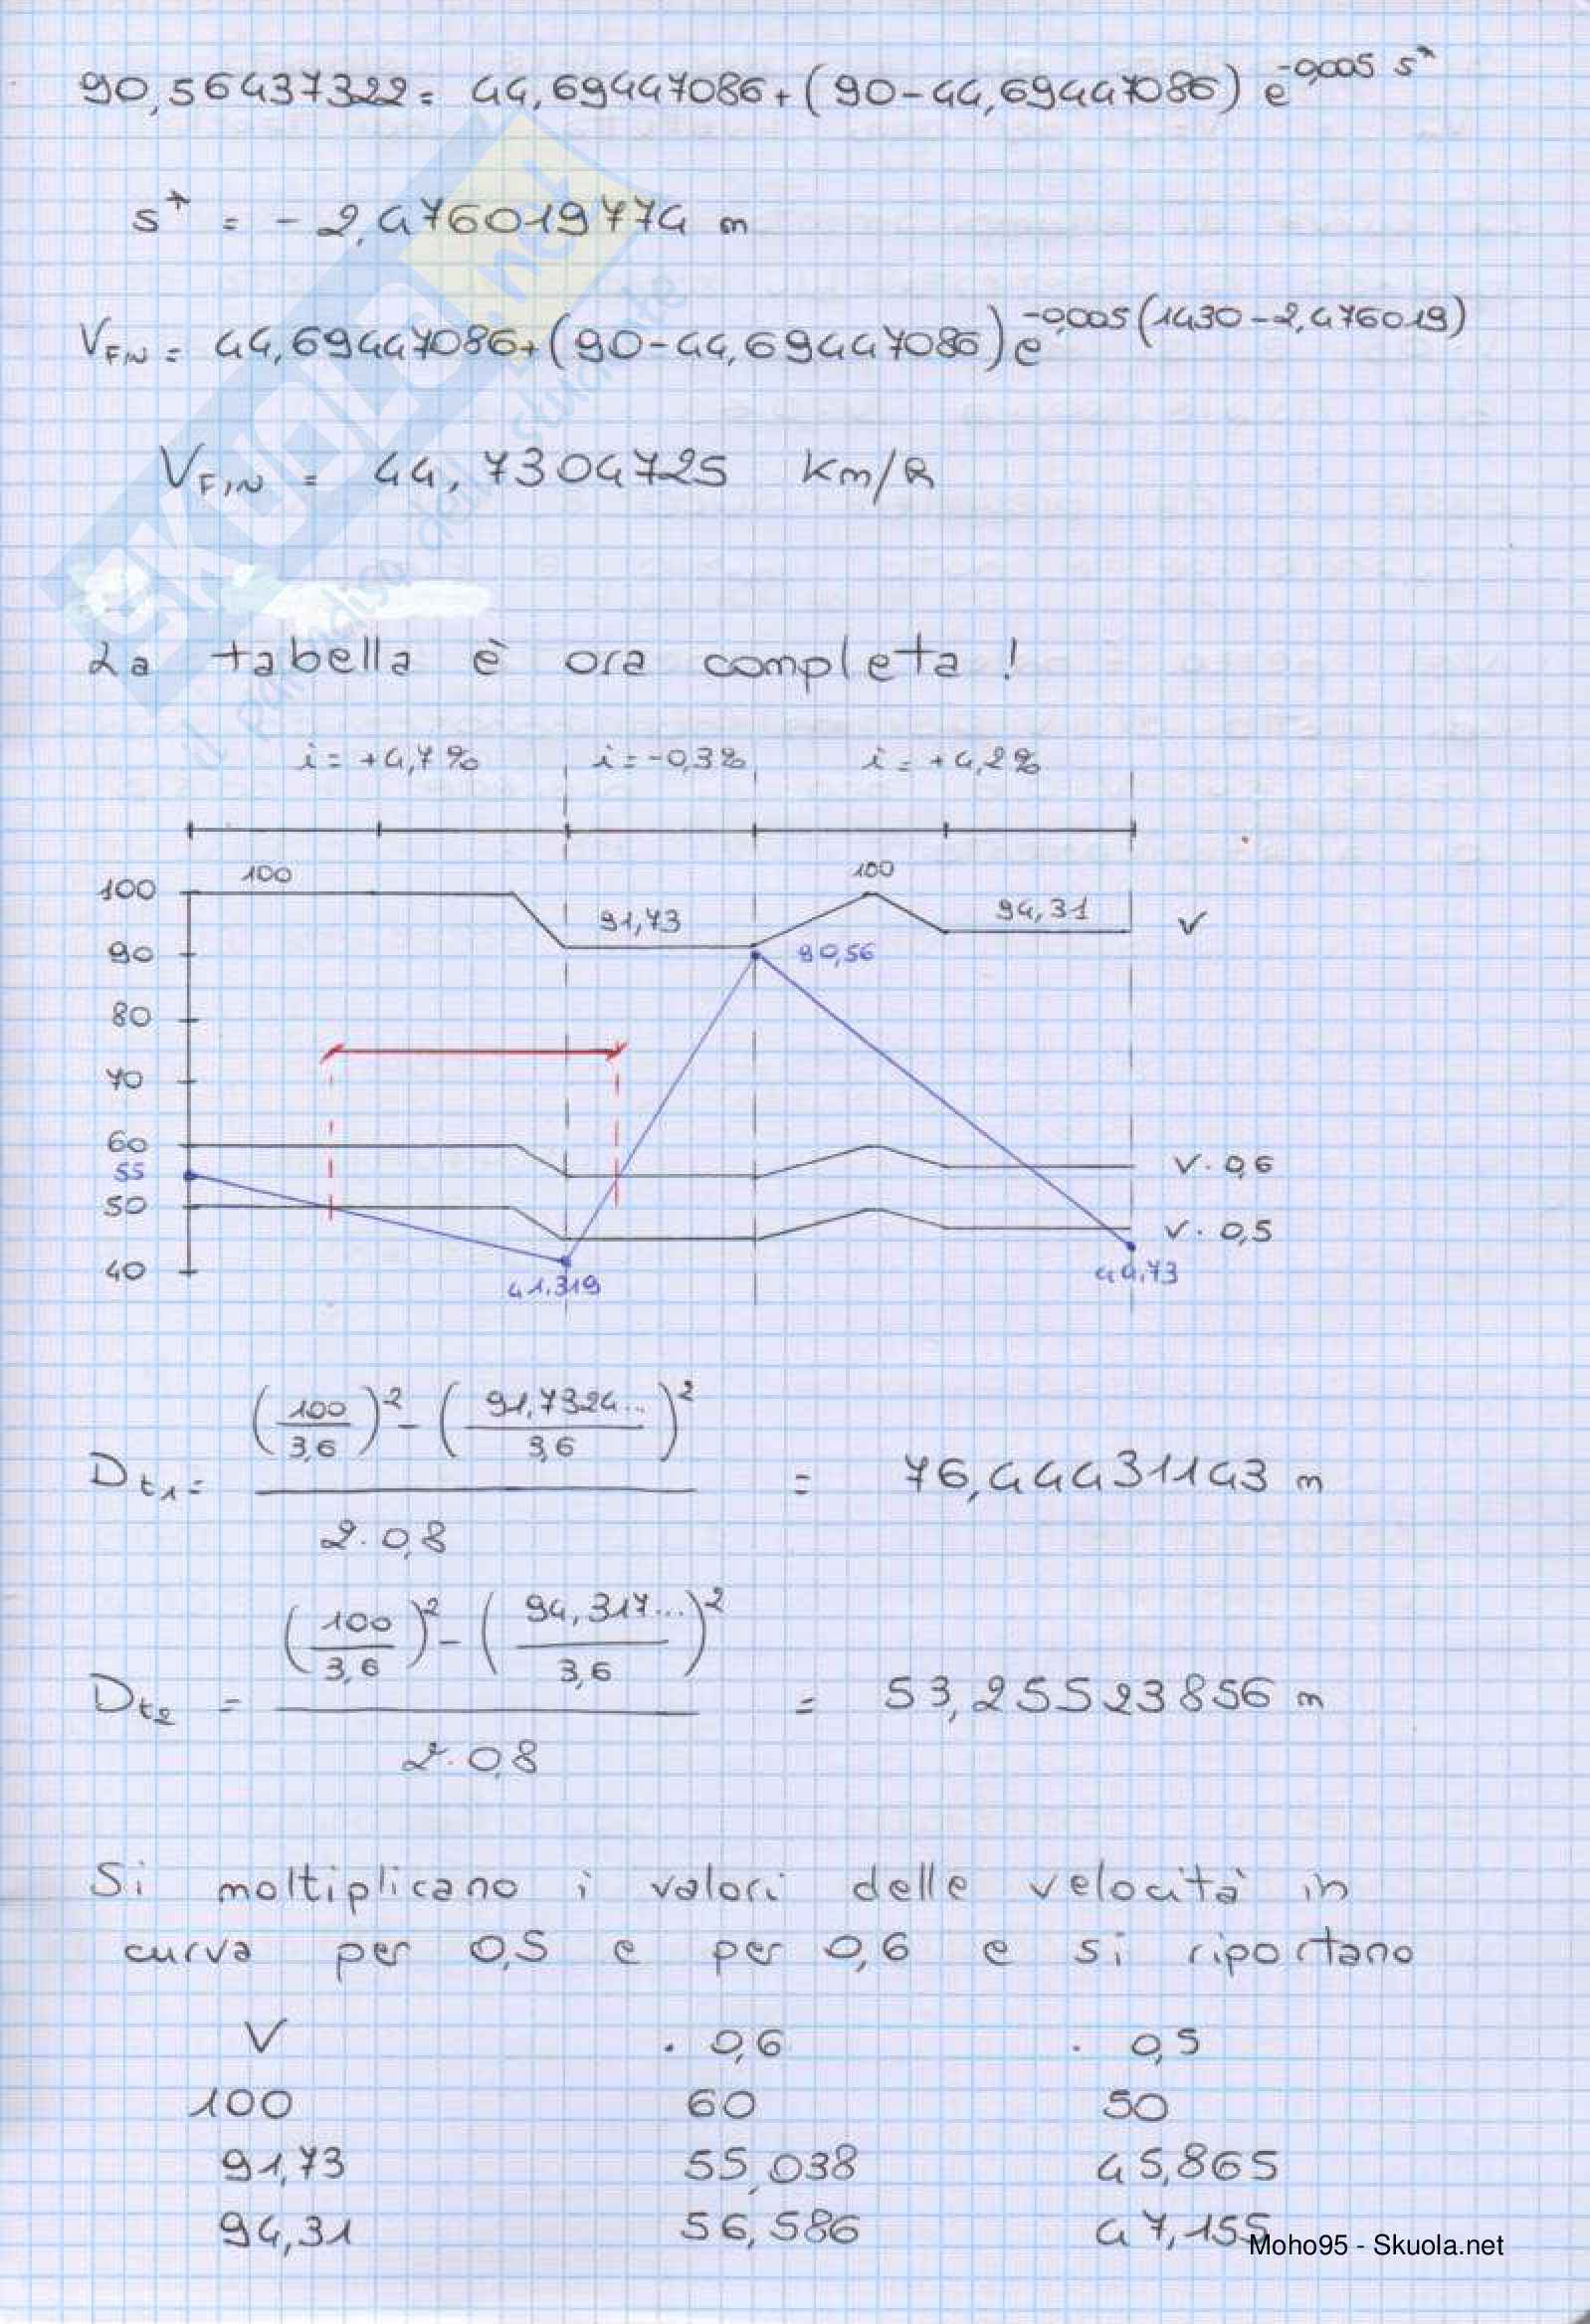 90,56437322 = 44,69447086 + (90 - 44,69447086) e^-0,005 s*
s* = - 2,476019774 m
V_FIN = 44,69447086 + (90 - 44,69447086) e^-0,005(1430 - 2,476019)
V_FIN = 44,7304725 Km/h
La tabella è ora completa !
i = +4,7% i = -0,3% i = +4,2%
100 100
100
91,73 94,31 V
90 90,56
80
70
60
55 V · 0,6
50
V · 0,5
40
41,319 44,73
D_t1 = ((100/3,6)² - (91,7324.../3,6)²) / (2·0,8) = 76,44431143 m
D_t2 = ((100/3,6)² - (94,317.../3,6)²) / (2·0,8) = 53,25523856 m
Si moltiplicano i valori delle velocità in
curva per 0,5 e per 0,6 e si riportano
V · 0,6 · 0,5
100 60 50
91,73 55,038 45,865
94,31 56,586 47,155
Moho95 - Skuola.net